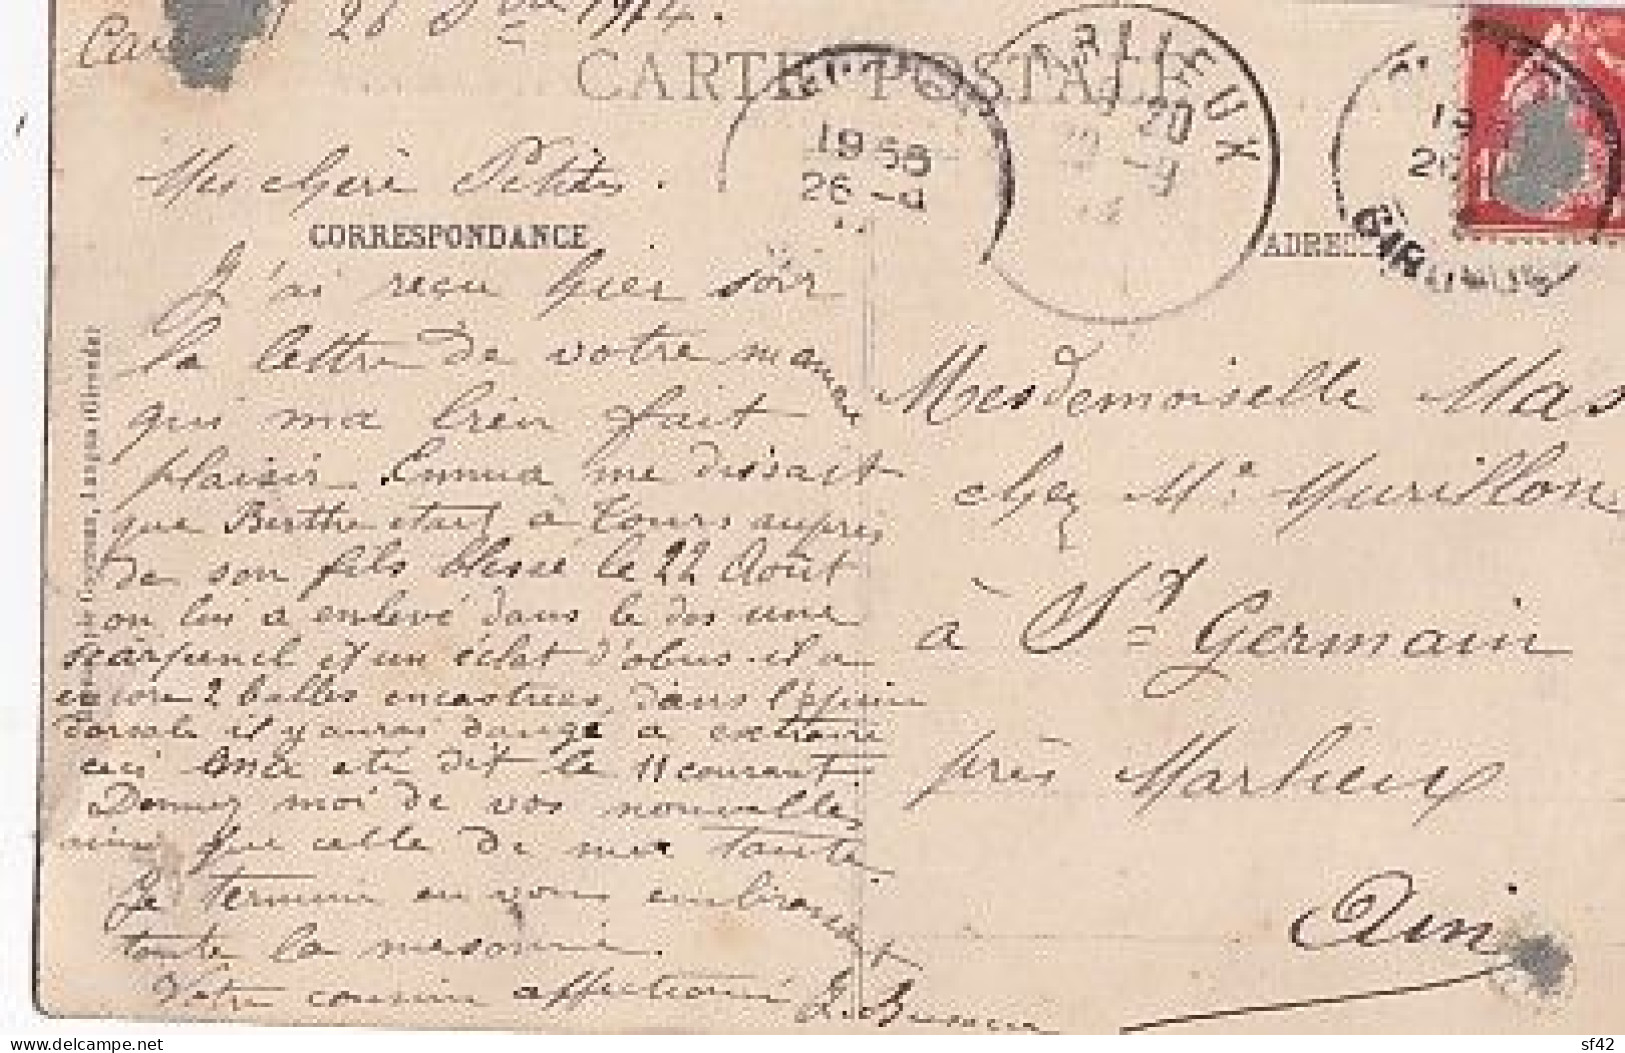 26 1914.
CARTE POSTALE
MARLIEUX
20
20 -9
14
19 58
26 -9
19
26
GIRONDE
Mes chère Petites.
CORRESPONDANCE
ADRESSE
J'ai reçu hier soir
la lettre de votre maman
qui ma bien fait
plaisir Emma me dissait
que Berthe etais à Tours auprès
de son fils blessé le 22 Août
on lui a enlevé dans le dos une
et un éclat d'obus il a
encore 2 balles encastrees, dans l'épine
dorsale il y aurai dangé a extraire
ceci ma ete dit le 11 courant
Donnez moi de vos nouvelles
ainsi que celle de ma tante
Je termine en vous embrassant
toute la
Votre cousin affectionné
Mesdemoiselle Mas
chez Mr Murillon
à St Germain
près Marlieux
Ain
Langon (Gironde)
https://www.delcampe.net
sf42